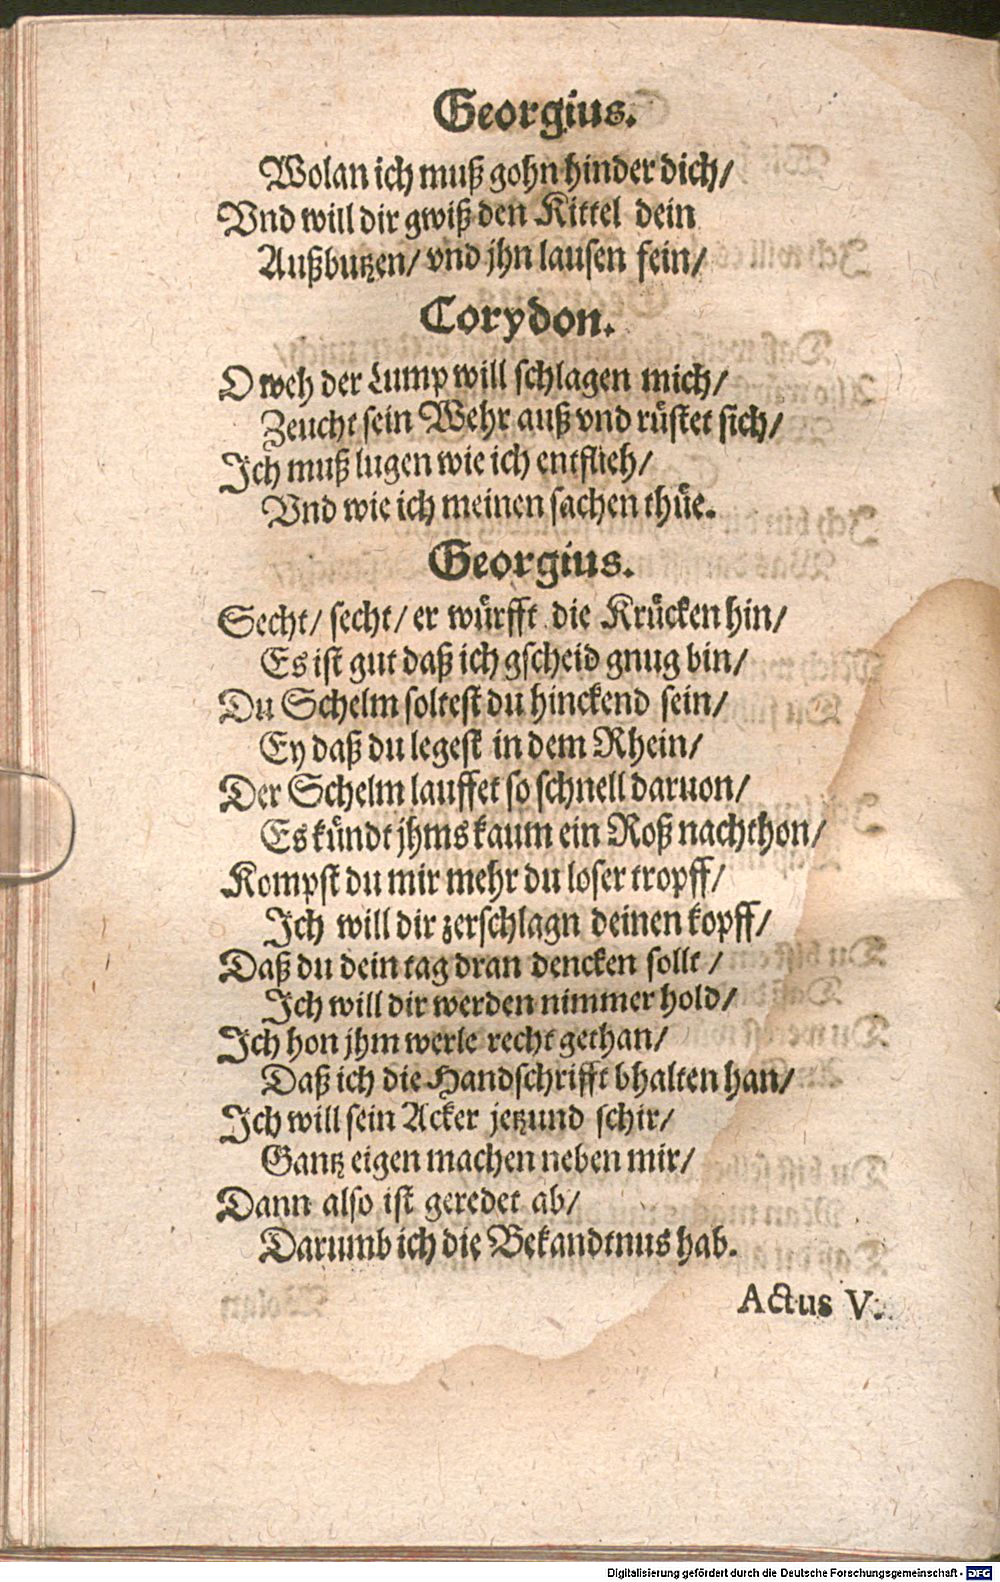 Georgius.
Wolan ich muß gohn hinder dich/
Vnd will dir gwiß den Kittel dein
Außbutzen/ vnd jhn lausen fein/
Corydon.
O weh der Lump will schlagen mich/
Zeucht sein Wehr auß vnd rüstet sich/
Ich muß lugen wie ich entflieh/
Vnd wie ich meinen sachen thüe.
Georgius.
Secht/ secht/ er würfft die Krücken hin/
Es ist gut daß ich gscheid gnug bin/
Du Schelm soltest du hinckend sein/
Ey daß du legest in dem Rhein/
Der Schelm lauffet so schnell daruon/
Es kündt jhms kaum ein Roß nachthon/
Kompst du mir mehr du loser tropff/
Ich will dir zerschlagn deinen kopff/
Daß du dein tag dran dencken sollt/
Ich will dir werden nimmer hold/
Ich hon jhm werle recht gethan/
Daß ich die Handschrifft bhalten han/
Ich will sein Acker jetzund schir/
Gantz eigen machen neben mir/
Dann also ist geredet ab/
Darumb ich die Bekandtnus hab.
Actus V.
Digitalisierung gefördert durch die Deutsche Forschungsgemeinschaft - DFG